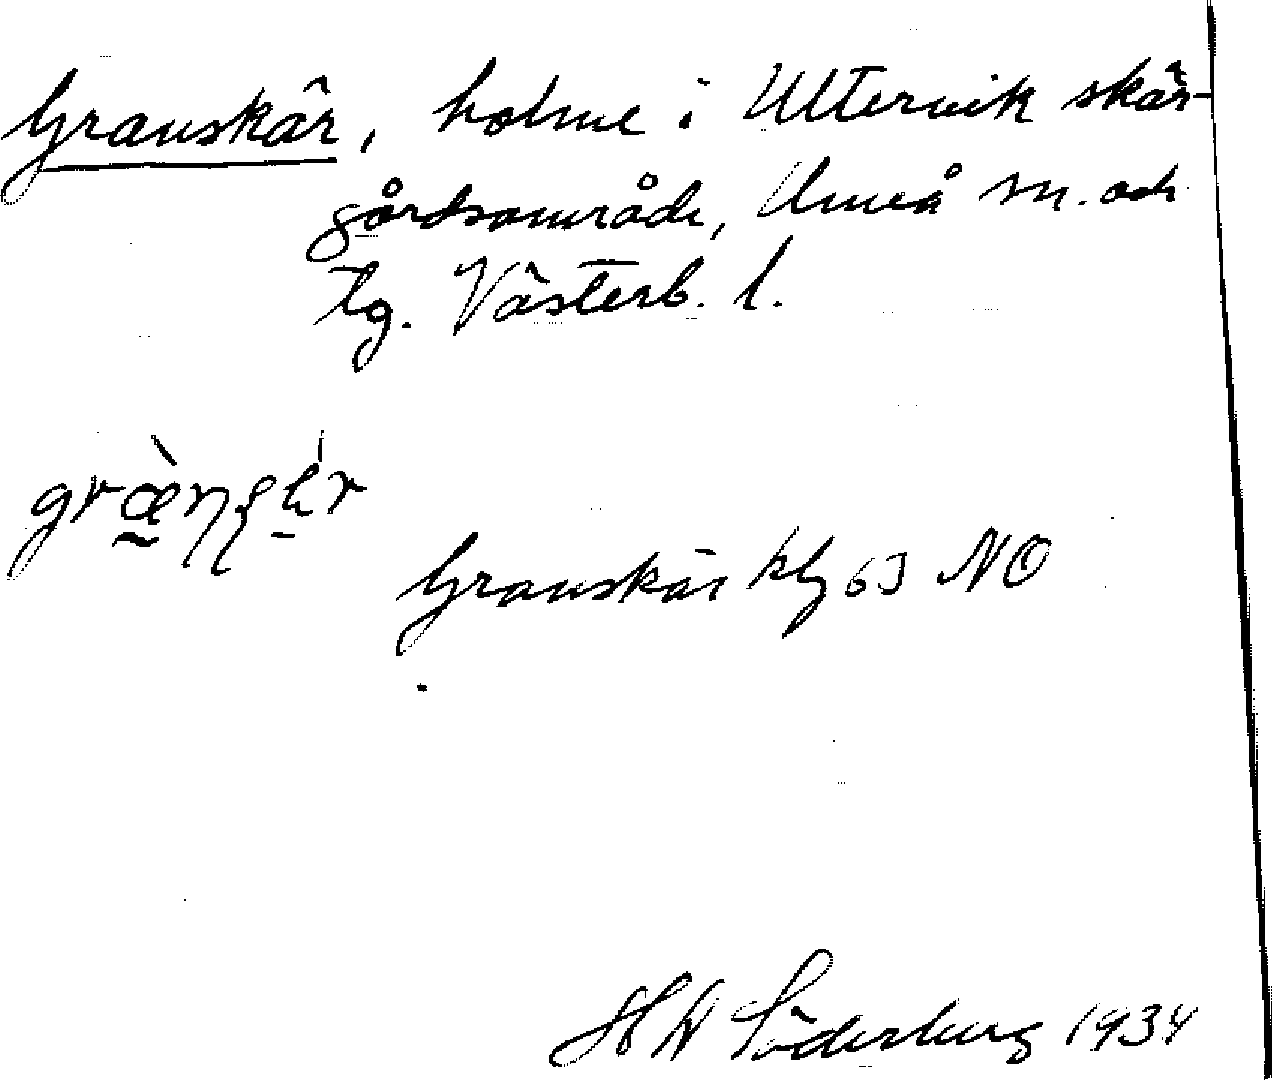 Granskär, holme i Ultervik skär-
gårdsområde, Umeå sn. och
tg. Västerb. l.
Granskär kbl 63 NO
H W Söderberg 1934